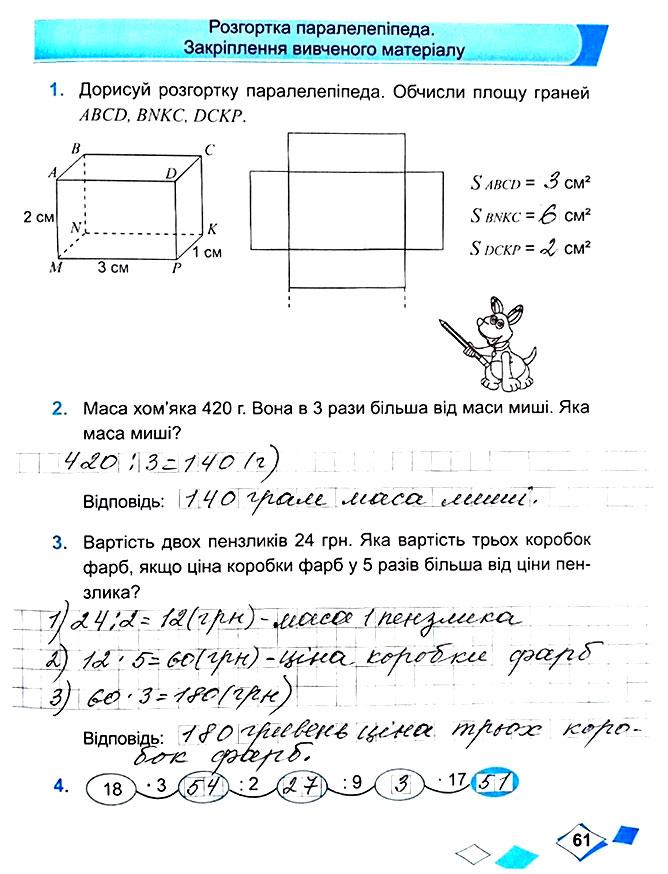 Розгортка паралелепіпеда.
Закріплення вивченого матеріалу
1. Дорисуй розгортку паралелепіпеда. Обчисли площу граней
ABCD, BNKC, DCKP.
B C
A D
2 см
N K
1 см
M 3 см P
S ABCD = 3 см²
S BNKC = 6 см²
S DCKP = 2 см²
2. Маса хом'яка 420 г. Вона в 3 рази більша від маси миші. Яка
маса миші?
420 : 3 = 140 (г)
Відповідь: 140 грам маса миші.
3. Вартість двох пензликів 24 грн. Яка вартість трьох коробок
фарб, якщо ціна коробки фарб у 5 разів більша від ціни пен-
злика?
1) 24 : 2 = 12 (грн) - маса 1 пензлика
2) 12 · 5 = 60 (грн) - ціна коробки фарб
3) 60 · 3 = 180 (грн)
Відповідь: 180 гривень ціна трьох коро-
бок фарб.
4. 18 · 3 54 : 2 27 : 9 3 · 17 51
61